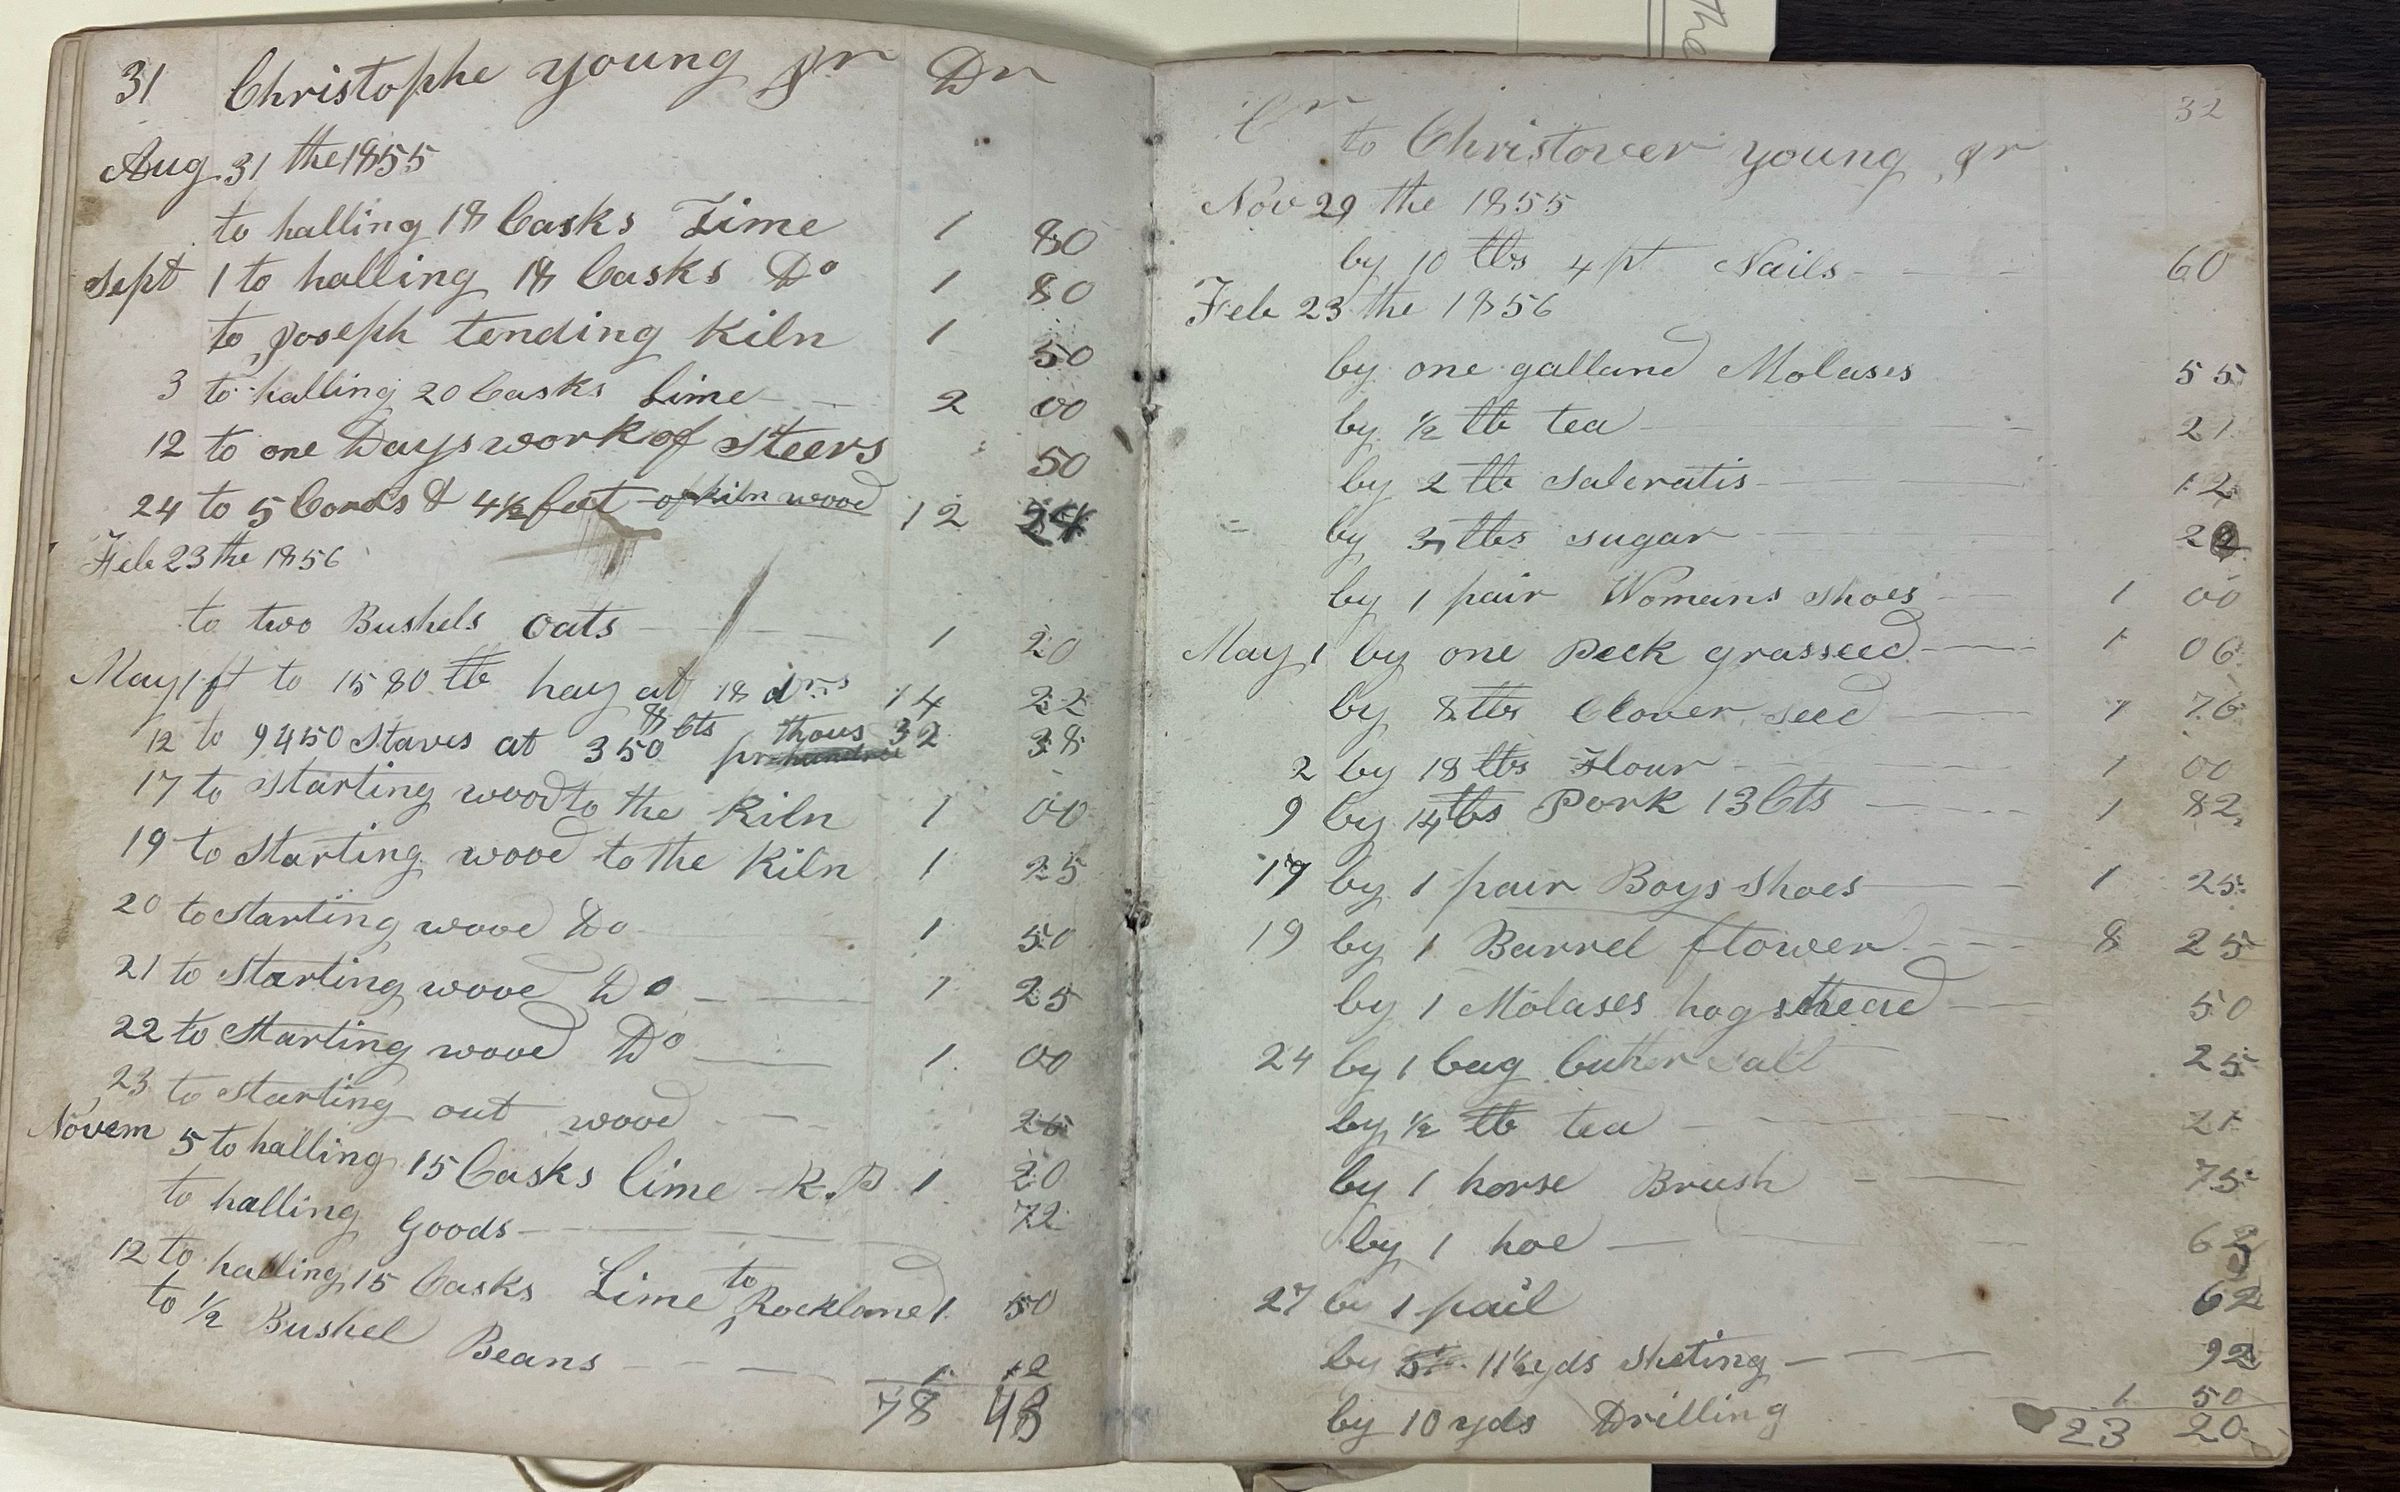 The
31 Christophe young Jr Dr
Aug 31 the 1855
to halling 18 Casks Lime 1 80
Sept 1 to halling 18 Casks Do 1 80
to Joseph tending Kiln 1 50
3 to halling 20 Casks Lime 2 00
12 to one Days work of Steers 50
24 to 5 Cords & 4½ feet of kiln wood 12 24
Feb 23 the 1856
to two Bushels oats 1 20
May 1 st to 1580 lb hay at 18 drs 14 22
12 to 9450 Staves at 350 8 cts pr thous 32 38
17 to Starting wood to the Kiln 1 00
19 to Starting wood to the Kiln 1 25
20 to starting wood Do 1 50
21 to Starting wood Do 1 25
22 to Starting wood Do 1 00
23 to starting out wood 25
Novem 5 to halling 15 Casks lime 1 20
to halling Goods 72
12 to halling 15 Casks Lime to Rockland 1 50
to ½ Bushel Beans 1 12
78 43
32
Cr to Christover young Jr
Nov 29 the 1855
by 10 lbs 4 pt Nails 60
Feb 23 the 1856
by one galland Molases 55
by ½ lb tea 21
by 2 lb Saleratis 12
by 3 lbs sugar
by 1 pair Womans shoes 1 00
May 1 by one Peck grasseed 1 06
by 8 lbs Clover seed 1 76
2 by 18 lbs Flour 1 00
9 by 14 lbs Pork 13 Cts 1 82
17 by 1 pair Boys Shoes 1 25
19 by 1 Barrel flower 8 25
by 1 Molases hogshead 50
24 by 1 bag butter salt 25
by ½ lb tea 21
by 1 horse Brush 75
by 1 hoe
27 by 1 pail 62
by 11½ yds sheting 92
by 10 yds Drilling 1 50
23 20